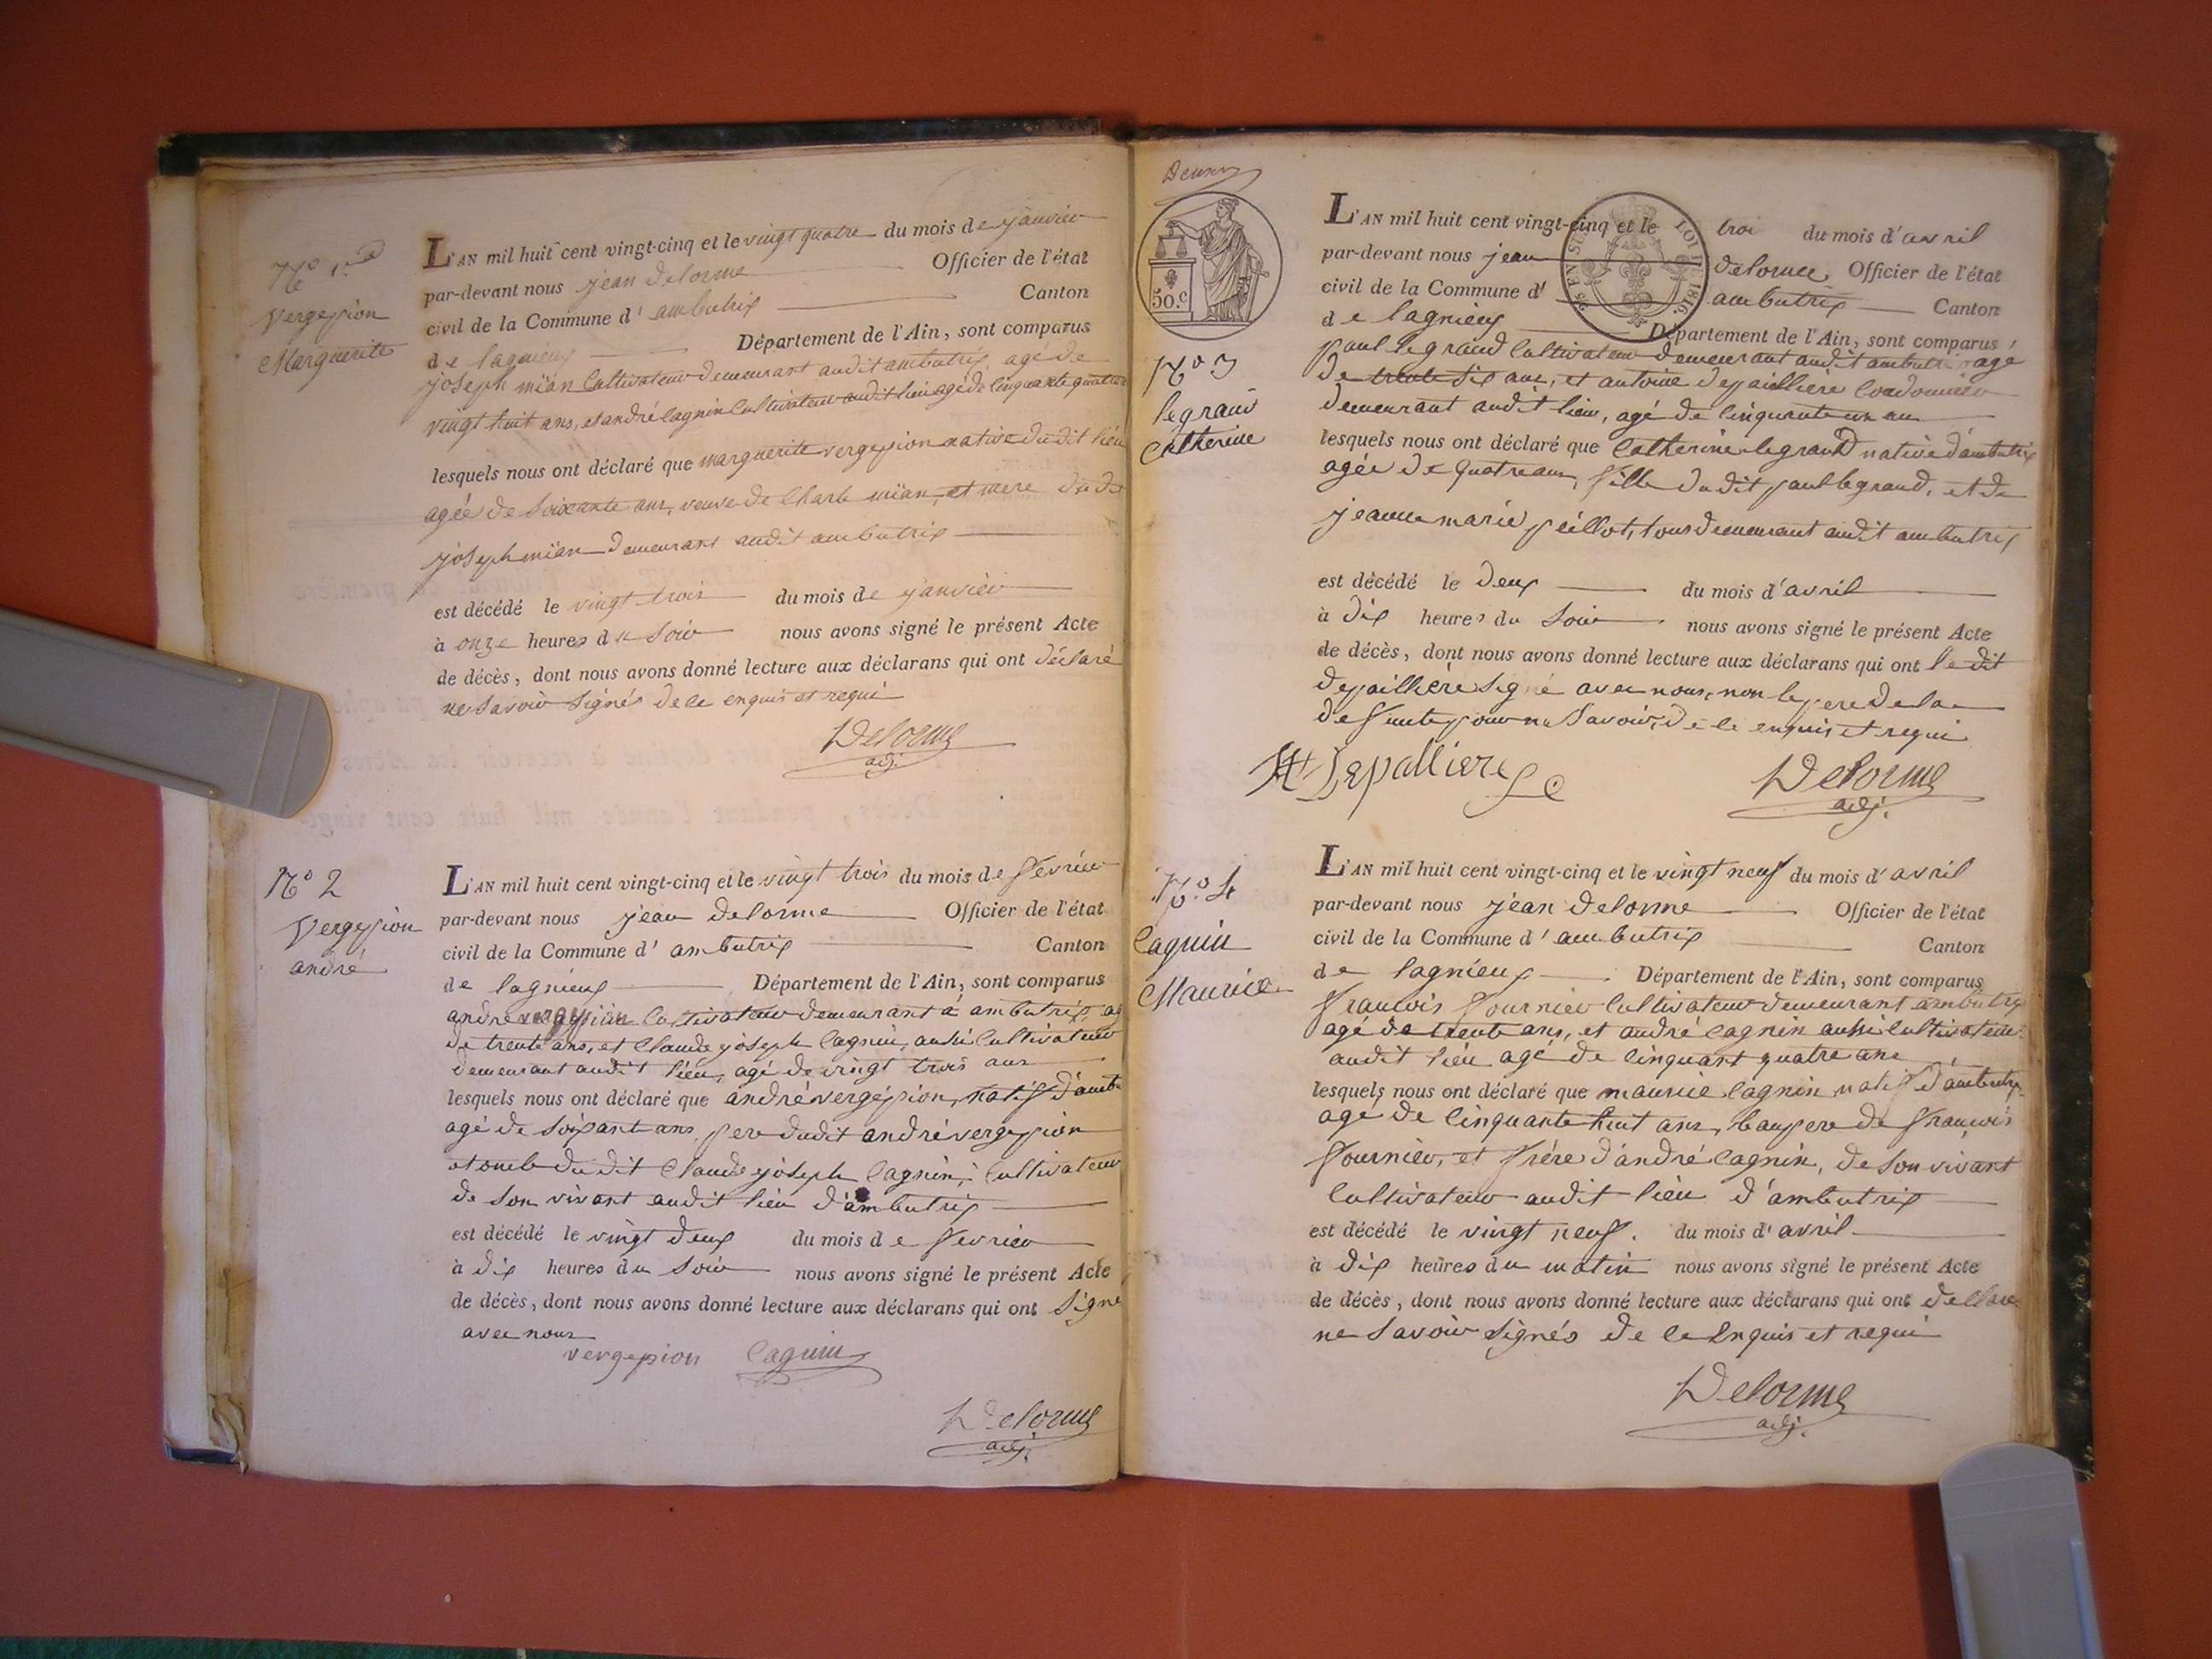 N° 1er
Vergepion
Marguerite
L'AN mil huit cent vingt-cinq et le vingt quatre du mois de janvier
par-devant nous jean delorme Officier de l'état
civil de la Commune d' ambutrix Canton
de lagnieux Département de l'Ain, sont comparus
joseph mïan Cultivateur demeurant audit ambutrix, agé de
vingt huit ans, et andré cagnin Cultivateur audit lieu agé de cinquante quatre
lesquels nous ont déclaré que marguerite vergepion native dudit lieu
agée de soixante ans, veuve de Charle mïan, et mere dudit
joseph mïan demeurant audit ambutrix
est décédé le vingt trois du mois de janvier
à onze heures du soir nous avons signé le présent Acte
de décès, dont nous avons donné lecture aux déclarans qui ont déclaré
ne savoir signés de ce enquis et requi
Delorme
adj.
N° 2
Vergepion
andré
L'AN mil huit cent vingt-cinq et le vingt trois du mois de fevrier
par-devant nous jean delorme Officier de l'état
civil de la Commune d' ambutrix Canton
de lagnieux Département de l'Ain, sont comparus
andré vergepion Cultivateur demeurant à ambutrix, ag
de trente ans, et Claude joseph Cagnin, aussi Cultivateur
demeurant audit lieu, agé de vingt trois ans
lesquels nous ont déclaré que andré vergepion, natif d'ambu
agé de soixant ans, pere dudit andré vergepion
et oncle dudit Claude joseph Cagnin, Cultivateur
de son vivant audit lieu d'ambutrix
est décédé le vingt deux du mois de fevrier
à dix heures du soir nous avons signé le présent Acte
de décès, dont nous avons donné lecture aux déclarans qui ont signé
avec nous
vergepion Cagnin
Delorme
adj.
Deux
50.c
25 EN SUS LOI DE 1816.
N° 3
legrand
Catherine
L'AN mil huit cent vingt-cinq et le troi du mois d'avril
par-devant nous jean delorme Officier de l'état
civil de la Commune d' ambutrix Canton
de lagnieux Département de l'Ain, sont comparus
paul legrand Cultivateur demeurant audit ambutrix agé
de trente six ans, et antoine depaillere Cordonnier
demeurant audit lieu, agé de cinquante un an
lesquels nous ont déclaré que Catherine legrand native d'ambutrix
agée de quatre ans, fille dudit paul legrand, et de
jeanne marie peillot, tous demeurant audit ambutrix
est décédé le deux du mois d'avril
à dix heures du soir nous avons signé le présent Acte
de décès, dont nous avons donné lecture aux déclarans qui ont le dit
depaillere signé avec nous, non le pere de la
defunte pour ne savoir, de ce enquis et requi
Depalliere
Delorme
adj.
N° 4
Cagnin
Maurice
L'AN mil huit cent vingt-cinq et le vingt neuf du mois d'avril
par-devant nous jean delorme Officier de l'état
civil de la Commune d' ambutrix Canton
de lagnieux Département de l'Ain, sont comparus
francois fournier Cultivateur demeurant ambutrix
agé de trente ans, et andré cagnin aussi cultivateur
audit lieu agé de cinquant quatre ans
lesquels nous ont déclaré que maurice cagnin natif d'ambutrix
agé de cinquante huit ans, beaupere de francois
fournier, et frère d'andré cagnin, de son vivant
Cultivateur audit lieu d'ambutrix
est décédé le vingt neuf. du mois d'avril
à dix heures du matin nous avons signé le présent Acte
de décès, dont nous avons donné lecture aux déclarans qui ont
ne savoir signés de ce enquis et requi
Delorme
adj.